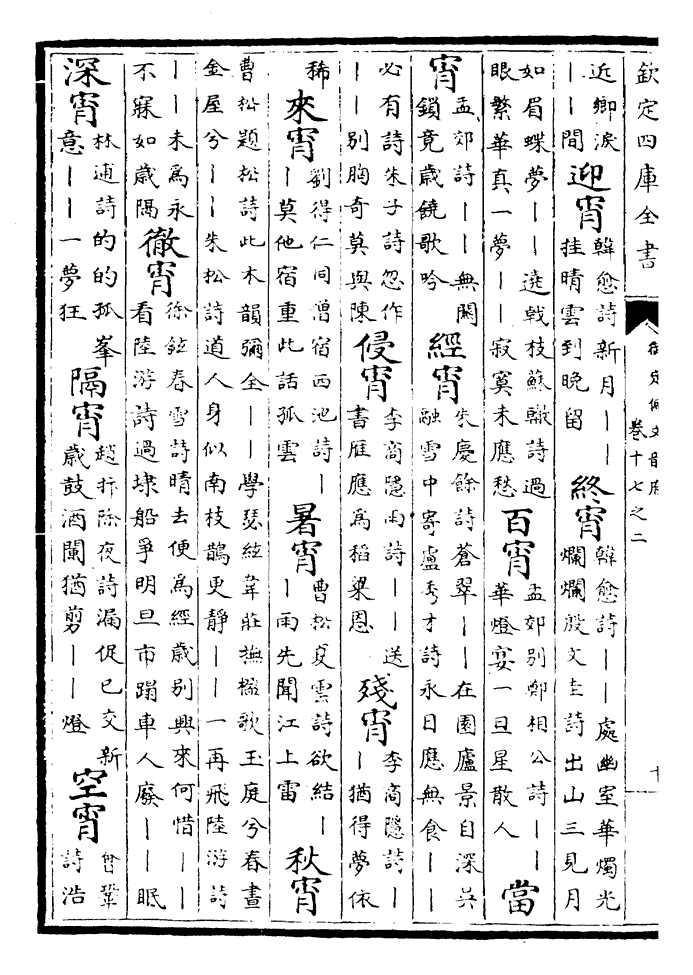 欽定四庫全書
御定佩文韻府
卷十七之二
十
近卿淚
丨丨間
迎宵
韓愈詩新月丨丨
挂晴雲到晚留
終宵
韓愈詩丨丨處幽室華燭光
爛爛殷文圭詩出山三見月
如眉蝶夢丨丨遶戟枝蘇轍詩過
眼繁華真一夢丨丨寂寞未應愁
百宵
孟郊别鄭相公詩丨丨
華燈宴一旦星散人
當
宵
孟郊詩丨丨無闕
鎖竟歲饒歌吟
經宵
朱慶餘詩蒼翠丨丨在園廬景自深吳
融雪中寄盧秀才詩永日應無食丨丨
必有詩朱子詩忽作
丨丨别胸奇莫與陳
侵宵
李商隱雨詩丨丨送
書雁應為稻粱恩
殘宵
李商隱詩丨
丨猶得夢依
稀
來宵
劉得仁同僧宿西池詩丨
丨莫他宿重此話孤雲
暑宵
曹松夏雲詩欲結丨
丨雨先聞江上雷
秋宵
曹松題松詩此木韻彌全丨丨學瑟絃韋莊撫楹歌玉庭兮春晝
金屋兮丨丨朱松詩道人身似南枝鵲更靜丨丨一再飛陸游詩
丨丨未為永
不寐如歲隔
徹宵
徐鉉春雪詩晴去便為經歲别興來何惜丨丨
看陸游詩過埭船爭明旦市蹋車人廢丨丨眠
深宵
林逋詩的的孤峯
意丨丨一夢狂
隔宵
趙抃除夜詩漏促已交新
歲鼓酒闌猶剪丨丨燈
空宵
曾鞏
詩浩